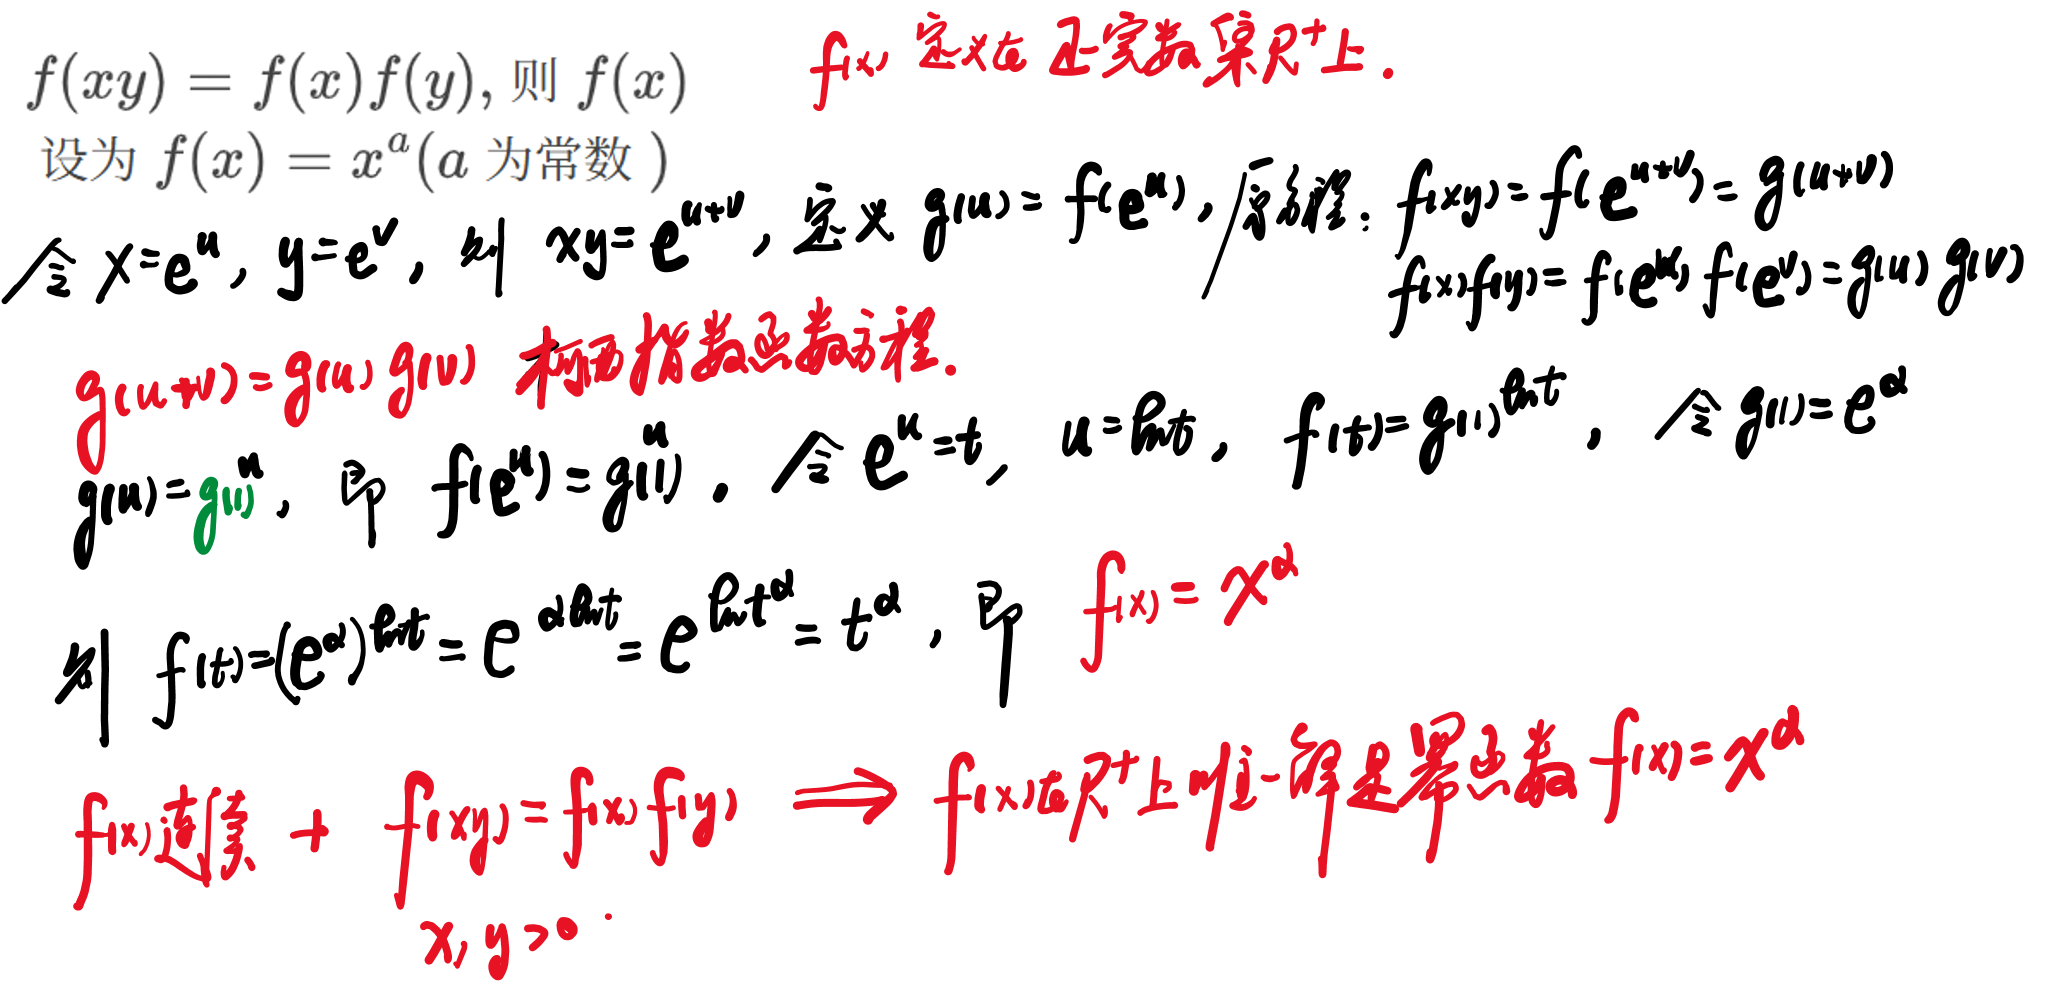 f(xy) = f(x)f(y), 则 f(x)
设为 f(x) = x^a (a 为常数 )
f(x) 定义在 正实数集R⁺上.
令 x=e^u, y=e^v, 则 xy=e^{u+v}, 定义 g(u)=f(e^u), 原方程: f(xy)=f(e^{u+v})=g(u+v)
f(x)f(y)=f(e^u)f(e^v)=g(u)g(v)
g(u+v)=g(u)g(v) 柯西指数函数方程.
g(u)=g(1)^u, 即 f(e^u)=g(1)^u. 令 e^u=t, u=lnt, f(t)=g(1)^{lnt}, 令 g(1)=e^α
则 f(t)=(e^α)^{lnt}=e^{αlnt}=e^{lnt^α}=t^α, 即 f(x)=x^α
f(x)连续 + f(xy)=f(x)f(y) ⟹ f(x)在R⁺上唯一解是幂函数f(x)=x^α
x, y>0